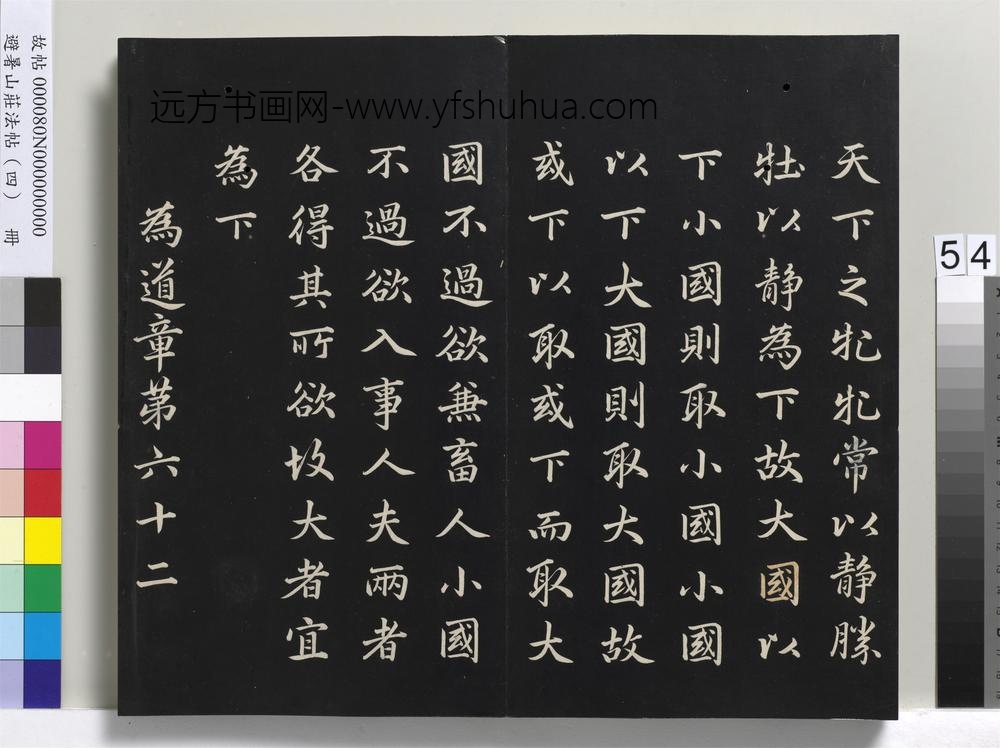 远方书画网-www.yfshuhua.com
天下之牝牝常以静勝
牡以静為下故大國以
下小國則取小國小國
以下大國則取大國故
或下以取或下而取大
國不過欲兼畜人小國
不過欲入事人夫兩者
各得其所欲故大者宜
為下
為道章第六十二
故帖 000080N000000000
避暑山莊法帖（四） 冊
54